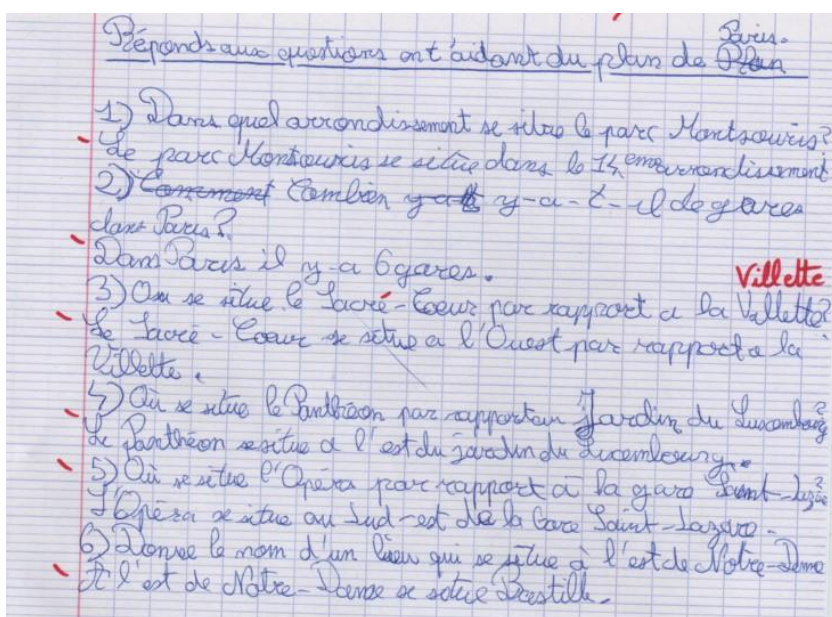 Paris.
Réponds aux questions ent'aidant du plan de Plan
1) Dans quel arrondissement se situe le parc Montsouris?
Le parc Montsouris se situe dans le 14eme arrondissement
2) Comment Combien y-a-t-il de gares
dans Paris?
Dans Paris il y-a 6 gares.
Villette
3) Ou se situe le Sacré-Coeur par rapport a la Vallette?
Le Sacré-Coeur se situe a l'Ouest par rapport a la
Villette.
4) Où se situe le Panthéon par rapport au Jardin du Luxembourg?
Le Panthéon se situe a l'est du jardin du Luxembourg.
5) Où se situe l'Opéra par rapport à la gare Saint-Lazare?
L'Opéra se situe au Sud-est de la Gare Saint-Lazare.
6) Donne le nom d'un lieu qui se situe à l'est de Notre-Dame
A l'est de Notre-Dame se situe Bastille.